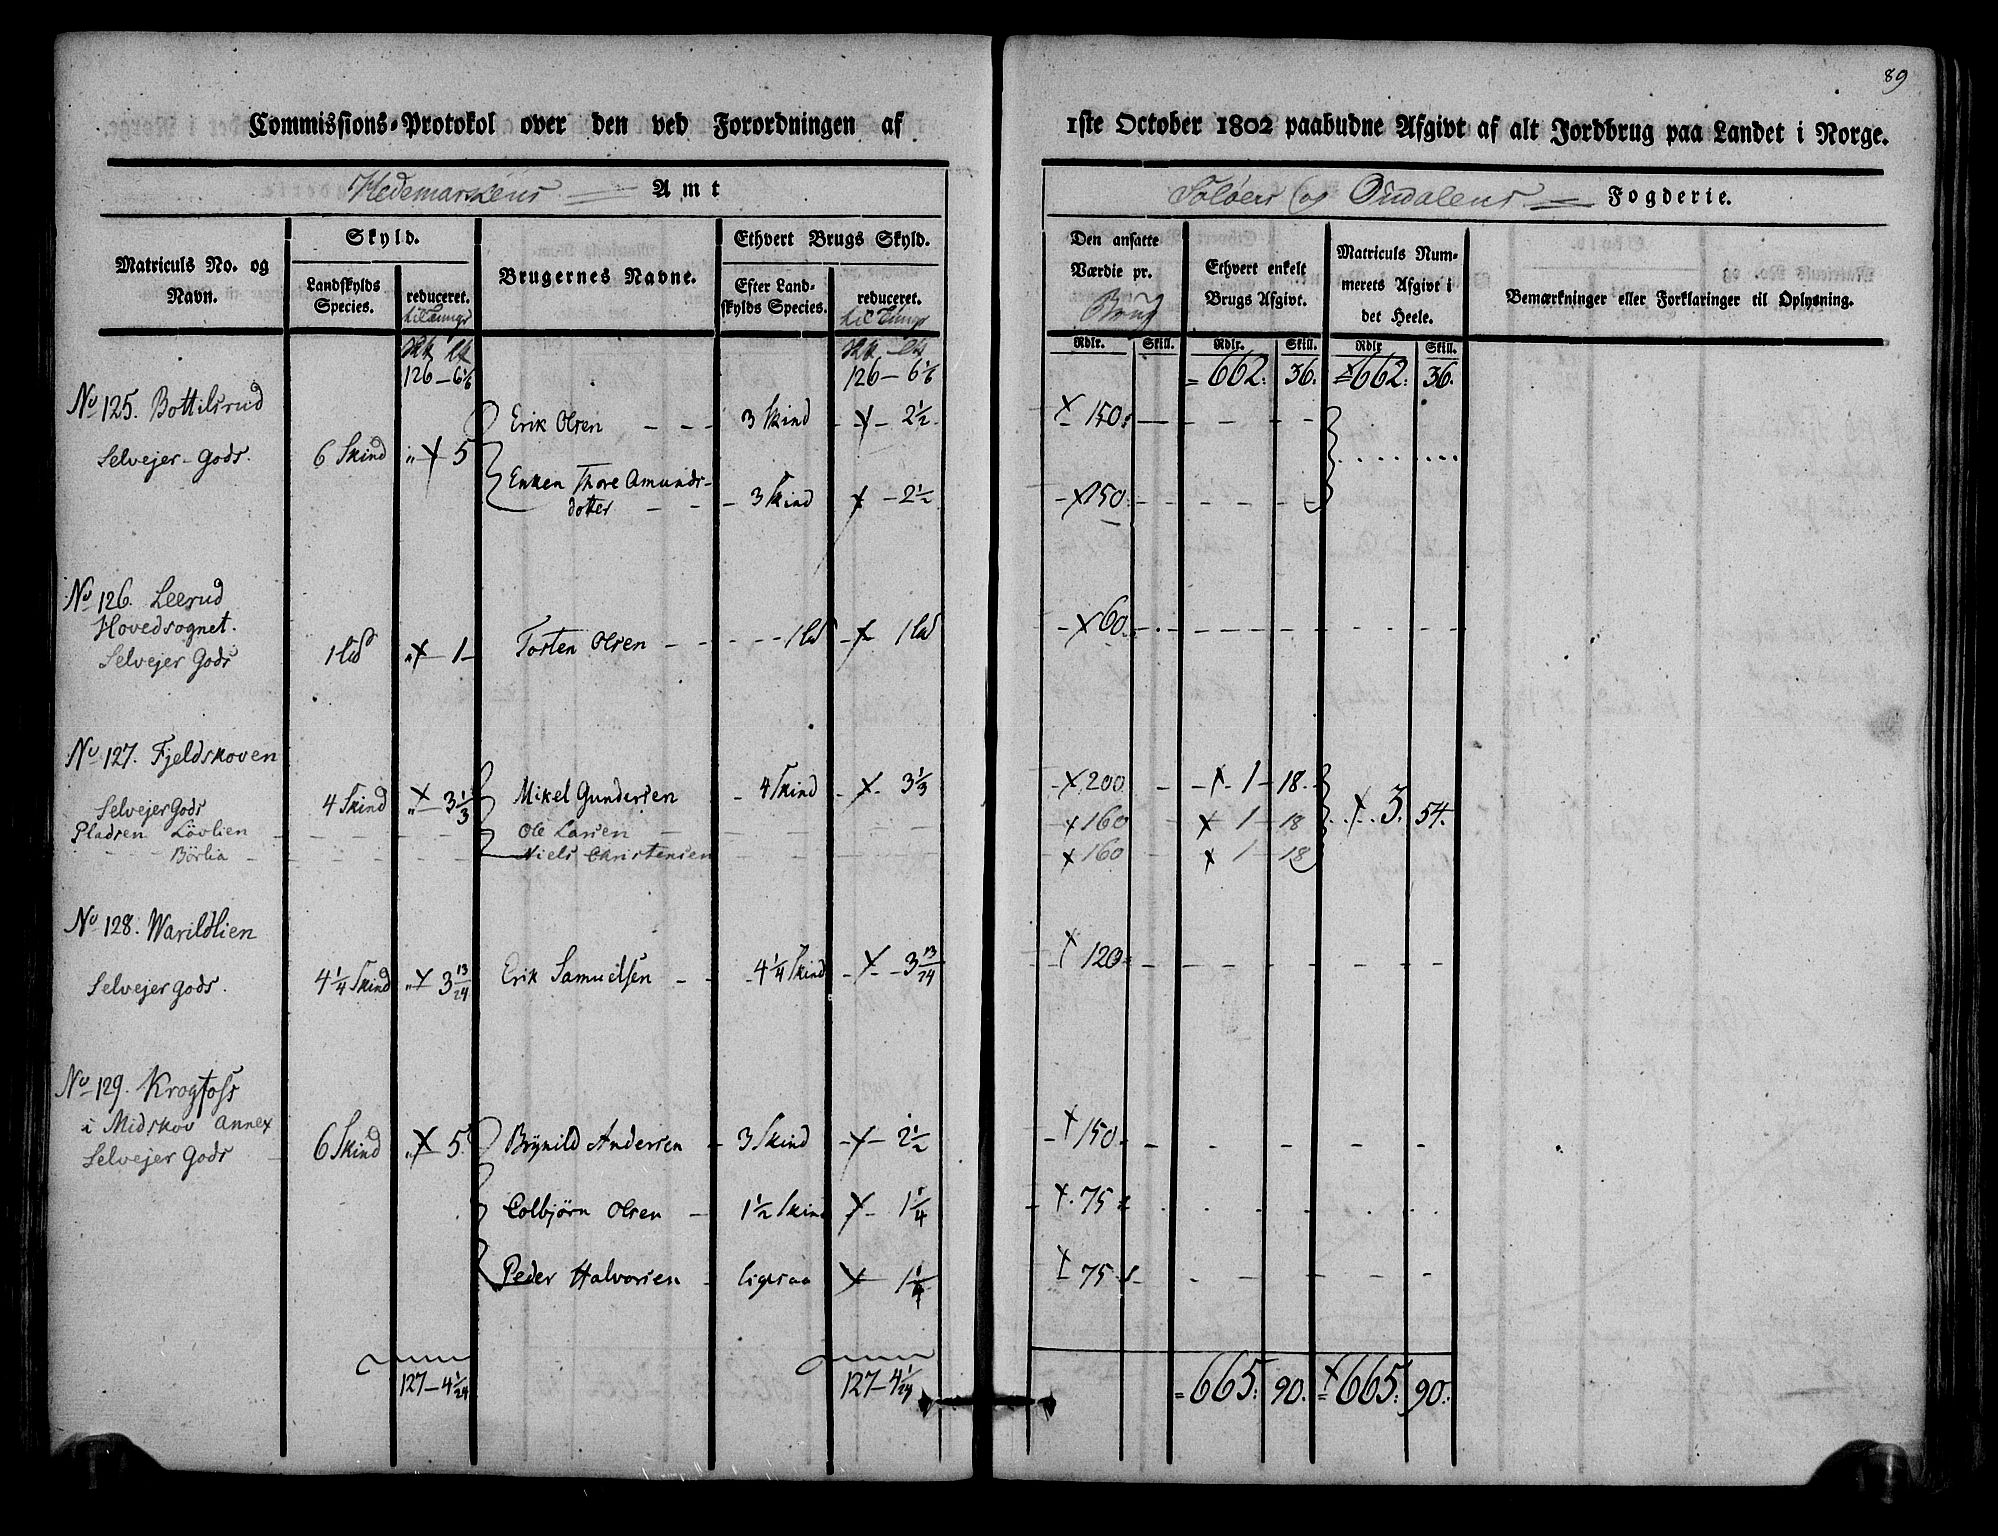 89
Commissions-Protokol over den ved Forordningen af 1ste October 1802 paabudne Afgivt af alt Jordbrug paa Landet i Norge.
Hedemarkens Amt
Soløer og Oudalens Fogderie.
Matriculs No. og Navn.
Skyld.
Landskylds Species.
reduceret.
til Tunge
Brugernes Navne.
Ethvert Brugs Skyld.
Efter Landskylds Species.
reduceret.
til Tunge
Den ansatte Værdie pr. Brug
Ethvert enkelt Brugs Afgivt.
Matriculs Nummerets Afgivt i det Heele.
Bemærkninger eller Forklaringer til Oplysning.
Rdlr. Skill. Rdlr. Skill. Rdlr Skill.
126 – 6 1/6 126 – 6 1/6 = 662: 36. 662: 36.
No 125. Bottilsrud
Erik Olsen – – – 3 Skind – – 2 1/2 150:
Selvejer-Gods. 6 Skind 5
Enken Thore Amunds-
dotter – – – 3 Skind – 2 1/2 150:
No 126. Leerud
Hovedsognet.
Selvejer Gods 1 – 60
Torsten Olsen
No 127. Fjeldskoven
Selvejer Gods 4 Skind 3 1/3 Mikel Gundersen – 4 Skind 3 1/3 200 1 – 18. 3. 54.
Pladsen Lövlien Ole Larsen 160 1 – 18
Börlia Niels Christensen 160 1 – 18
No 128. Warildlien
Selvejer gods. 4 1/4 Skind 3 13/24 Erik Samuelsen – – 4 1/4 Skind 3 13/24 120
No 129. Krogfoss
i Midskov Annex
Selvejer Gods 6 Skind 5. Brynild Andersen – 3 Skind – 2 1/2 150
Colbjörn Olsen – 1 1/2 Skind 1 1/4 75
Peder Halvorsen – ligesaa 1 1/4 75
127 – 4 1/24 127 – 4 1/24 = 665: 90. 665: 90.